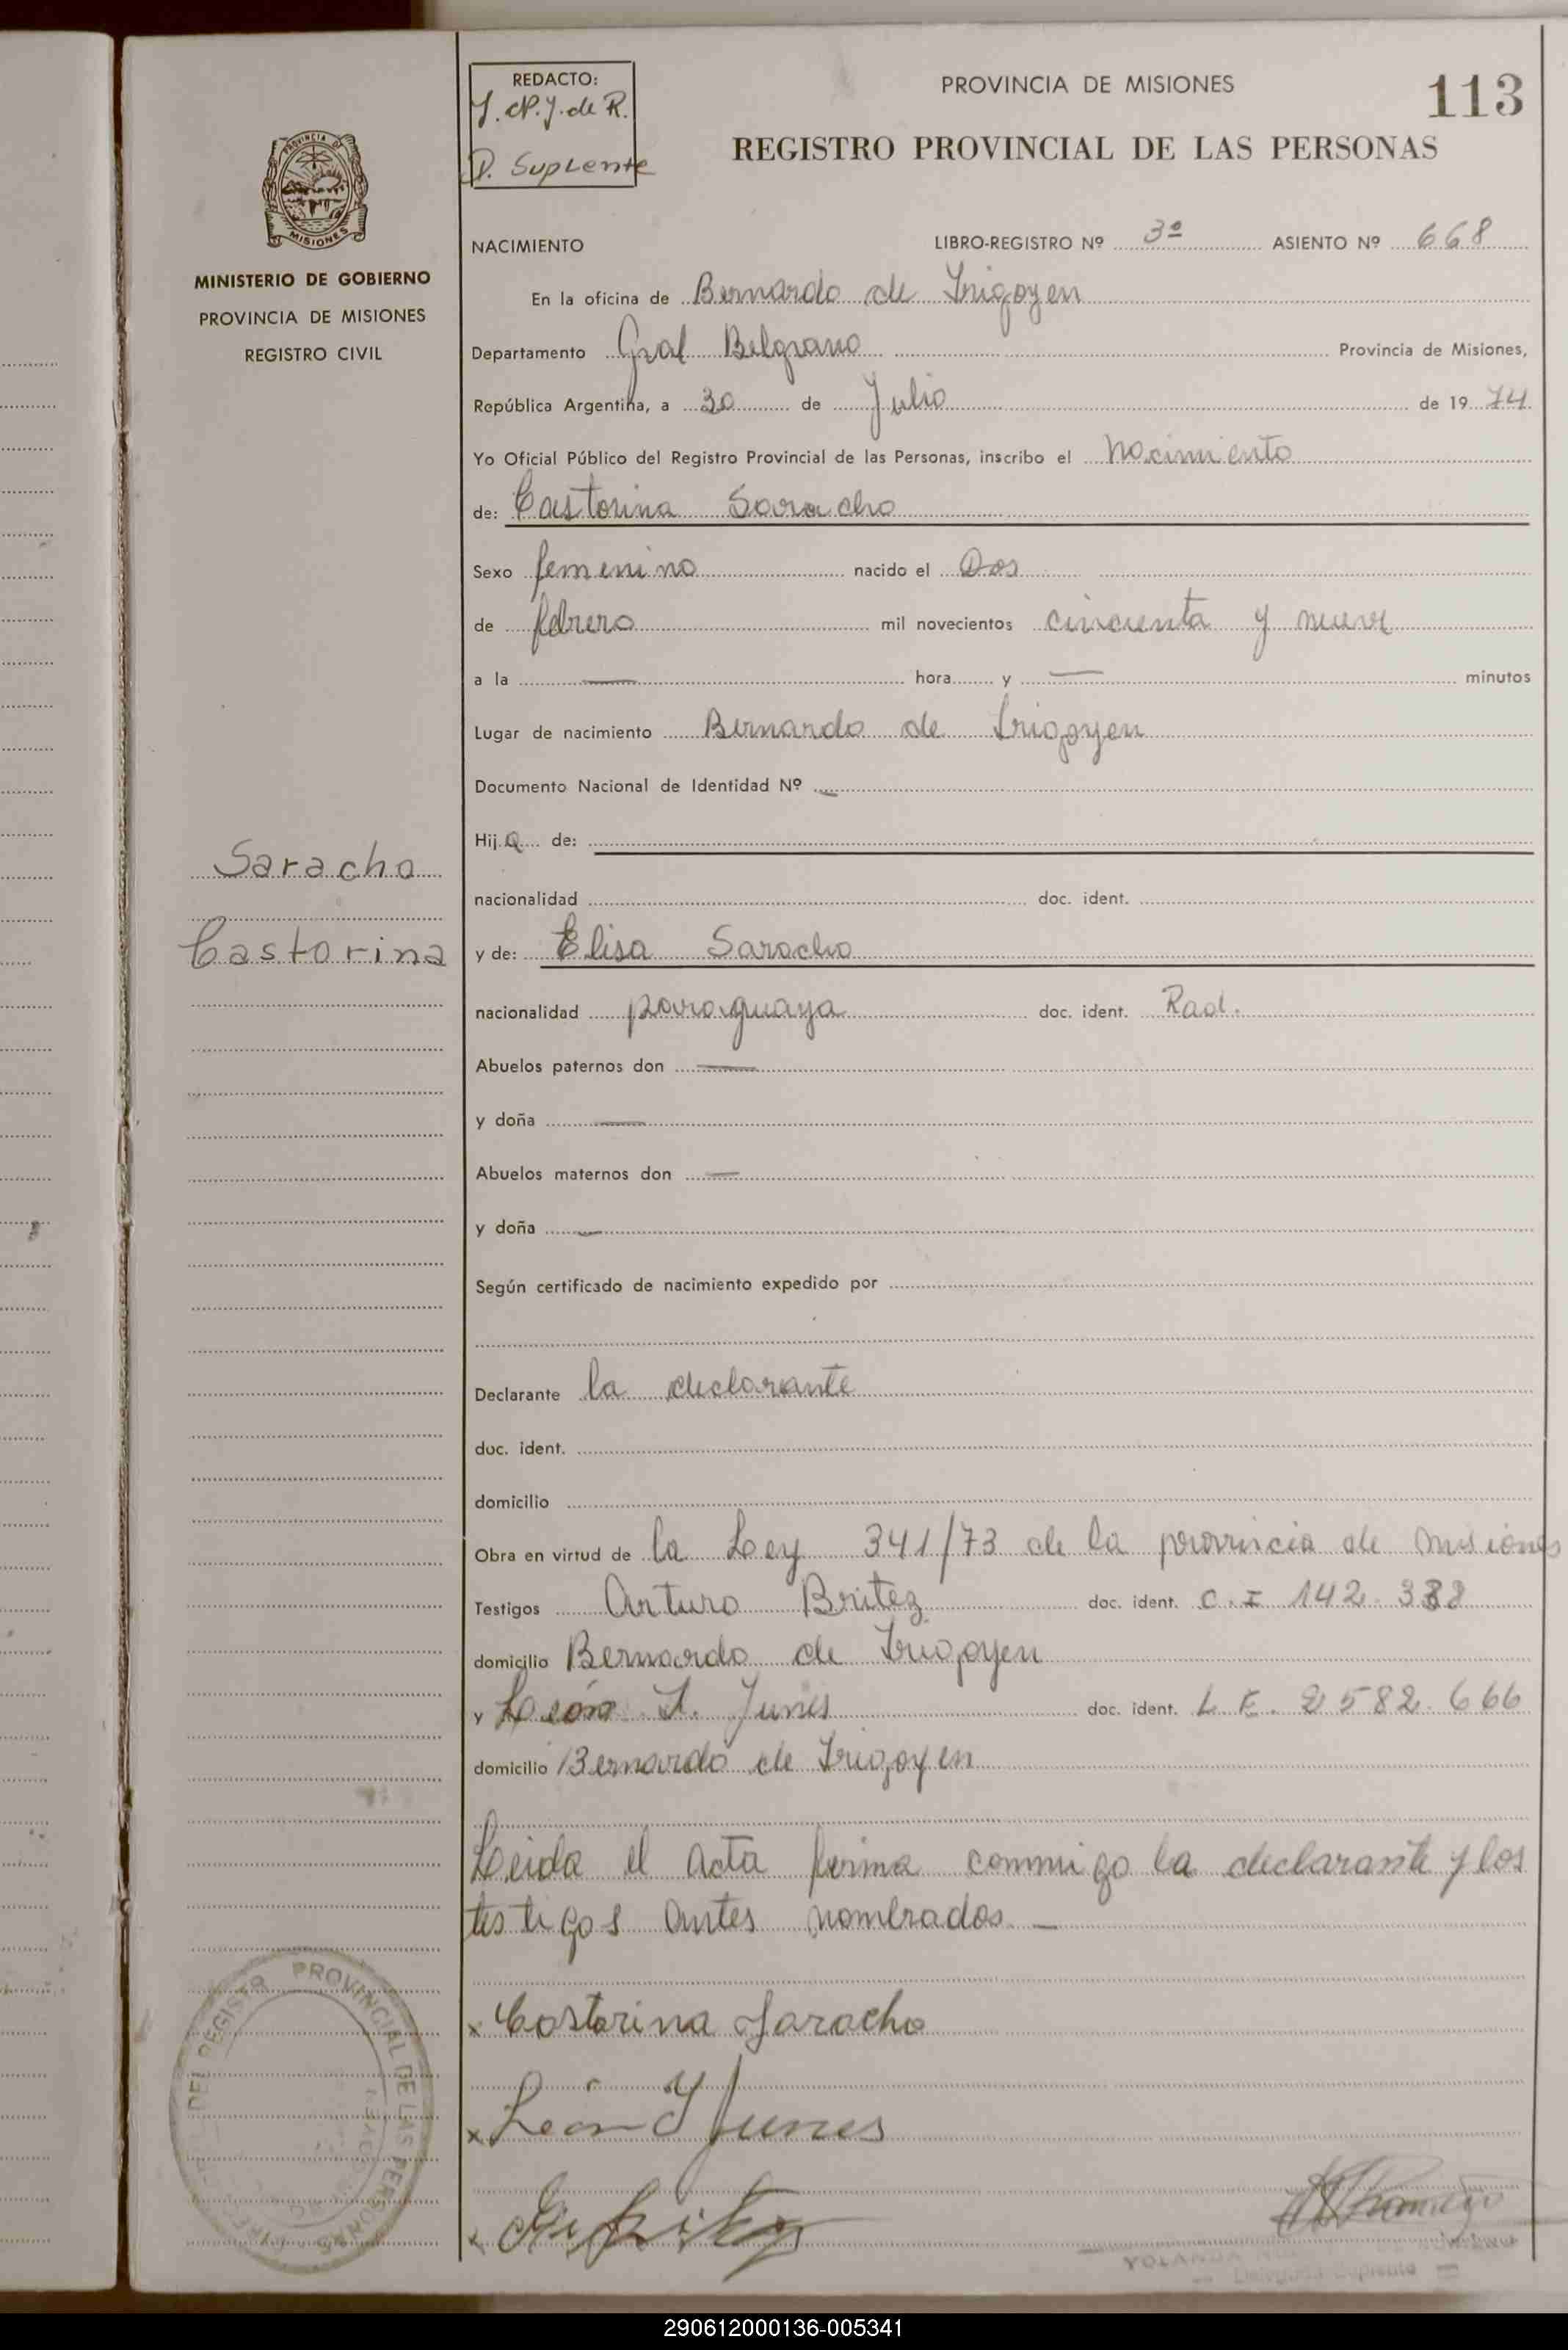 REDACTO:
J. N. J. de R.
D. Suplente
PROVINCIA DE MISIONES
113
REGISTRO PROVINCIAL DE LAS PERSONAS
PROVINCIA DE
MISIONES
MINISTERIO DE GOBIERNO
PROVINCIA DE MISIONES
REGISTRO CIVIL
NACIMIENTO LIBRO-REGISTRO Nº 3º ASIENTO Nº 668
En la oficina de Bernardo de Irigoyen
Departamento Gral Belgrano Provincia de Misiones,
República Argentina, a 30 de Julio de 1974
Yo Oficial Público del Registro Provincial de las Personas, inscribo el nacimiento
de: Castorina Saracho
Sexo femenino nacido el Dos
de febrero mil novecientos cincuenta y nueve
a la — hora y — minutos
Lugar de nacimiento Bernardo de Irigoyen
Documento Nacional de Identidad Nº —
Hija de:
Saracho
nacionalidad doc. ident.
Castorina
y de: Elisa Saracho
nacionalidad paraguaya doc. ident. Rad.
Abuelos paternos don —
y doña —
Abuelos maternos don —
y doña —
Según certificado de nacimiento expedido por
Declarante la declarante
doc. ident.
domicilio
Obra en virtud de la Ley 341/73 de la provincia de misiones
Testigos Arturo Britez doc. ident. C. I 142.388
domicilio Bernardo de Irigoyen
y León I. Junes doc. ident. L E. 2582.666
domicilio Bernardo de Irigoyen
Leida el acta firma conmigo la declarante y los
testigos antes nombrados —
x Castorina Saracho
x León I Junes
x
DEL REGISTRO PROVINCIAL DE LAS PERSONAS
YOLANDA
Delegada Suplente
290612000136-005341